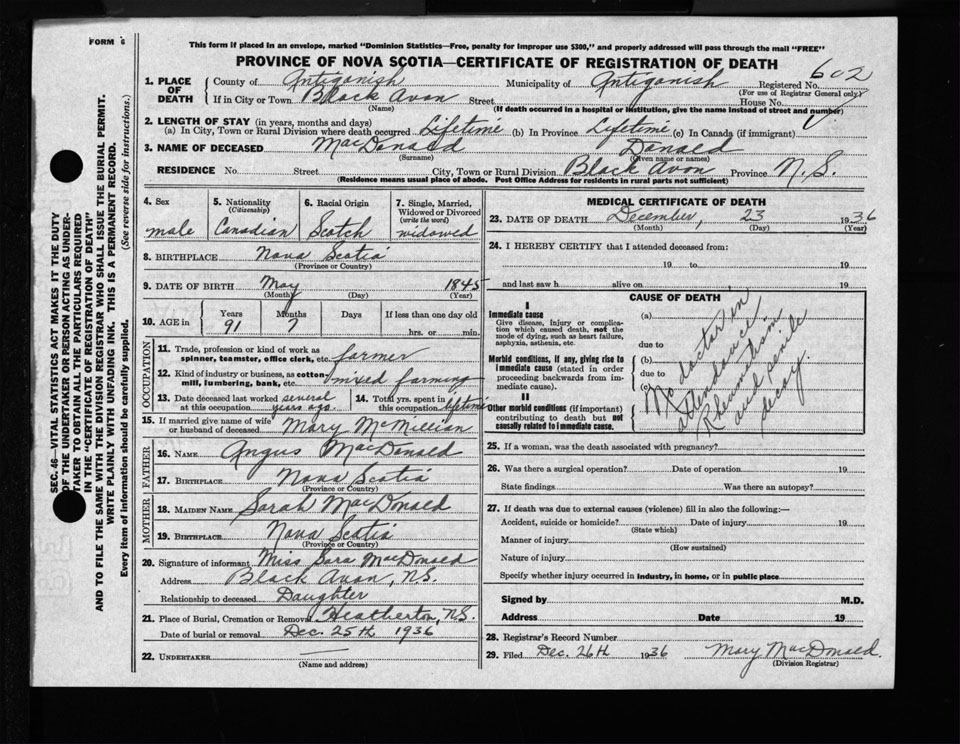 FORM 6
This form if placed in an envelope, marked "Dominion Statistics—Free, penalty for improper use $300," and properly addressed will pass through the mail "FREE"
PROVINCE OF NOVA SCOTIA—CERTIFICATE OF REGISTRATION OF DEATH
SEC. 46—VITAL STATISTICS ACT MAKES IT THE DUTY
OF THE UNDERTAKER OR PERSON ACTING AS UNDER-
TAKER TO OBTAIN ALL THE PARTICULARS REQUIRED
IN THE "CERTIFICATE OF REGISTRATION OF DEATH"
AND TO FILE THE SAME WITH THE DIVISION REGISTRAR WHO SHALL ISSUE THE BURIAL PERMIT.
WRITE PLAINLY WITH UNFADING INK. THIS IS A PERMANENT RECORD.
Every item of information should be carefully supplied. (See reverse side for instructions.)
1. PLACE OF DEATH County of Antigonish Municipality of Antigonish Registered No. 602
(For use of Registrar General only)
If in City or Town Black Avon Street House No.
(Name) (If death occurred in a hospital or institution, give its name instead of street and number)
2. LENGTH OF STAY (in years, months and days)
(a) In City, Town or Rural Division where death occurred Lifetime (b) In Province Lifetime (c) In Canada (if immigrant)
3. NAME OF DECEASED MacDonald Donald
(Surname) (Given name or names)
RESIDENCE No. Street City, Town or Rural Division Black Avon Province N.S.
(Residence means usual place of abode. Post Office Address for residents in rural parts not sufficient)
4. Sex male
5. Nationality (Citizenship) Canadian
6. Racial Origin Scotch
7. Single, Married, Widowed or Divorced (write the word) widowed
8. BIRTHPLACE Nova Scotia
(Province or Country)
9. DATE OF BIRTH May 1845
(Month) (Day) (Year)
10. AGE in Years 91 Months 7 Days If less than one day old hrs. or min.
OCCUPATION
11. Trade, profession or kind of work as spinner, teamster, office clerk, etc. farmer
12. Kind of industry or business, as cotton-mill, lumbering, bank, etc. mixed farming
13. Date deceased last worked at this occupation several years ago
14. Total yrs. spent in this occupation lifetime
15. If married give name of wife or husband of deceased Mary McMillian
FATHER
16. NAME Angus MacDonald
17. BIRTHPLACE Nova Scotia
(Province or Country)
MOTHER
18. MAIDEN NAME Sarah MacDonald
19. BIRTHPLACE Nova Scotia
(Province or Country)
20. Signature of informant Miss Sara MacDonald
Address Black Avon, N.S.
Relationship to deceased Daughter
21. Place of Burial, Cremation or Removal Heatherton, N.S.
Date of burial or removal Dec. 25th 1936
22. UNDERTAKER
(Name and address)
MEDICAL CERTIFICATE OF DEATH
23. DATE OF DEATH December, 23 1936
(Month) (Day) (Year)
24. I HEREBY CERTIFY that I attended deceased from:
19 to 19
and last saw h alive on 19
CAUSE OF DEATH
I
Immediate cause
Give disease, injury or complication which caused death, not the mode of dying, such as heart failure, asphyxia, asthenia, etc.
Morbid conditions, if any, giving rise to immediate cause (stated in order proceeding backwards from immediate cause).
II
Other morbid conditions (if important) contributing to death but not causally related to immediate cause.
(a)
due to
(b)
due to
(c)
No doctor in
attendance
Rheumatism
and senile
decay
25. If a woman, was the death associated with pregnancy?
26. Was there a surgical operation? Date of operation 19
State findings Was there an autopsy?
27. If death was due to external causes (violence) fill in also the following:—
Accident, suicide or homicide? Date of injury 19
(State which)
Manner of injury
(How sustained)
Nature of injury
Specify whether injury occurred in industry, in home, or in public place
Signed by M.D.
Address Date 19
28. Registrar's Record Number
29. Filed Dec. 26th 1936 Mary MacDonald.
(Division Registrar)